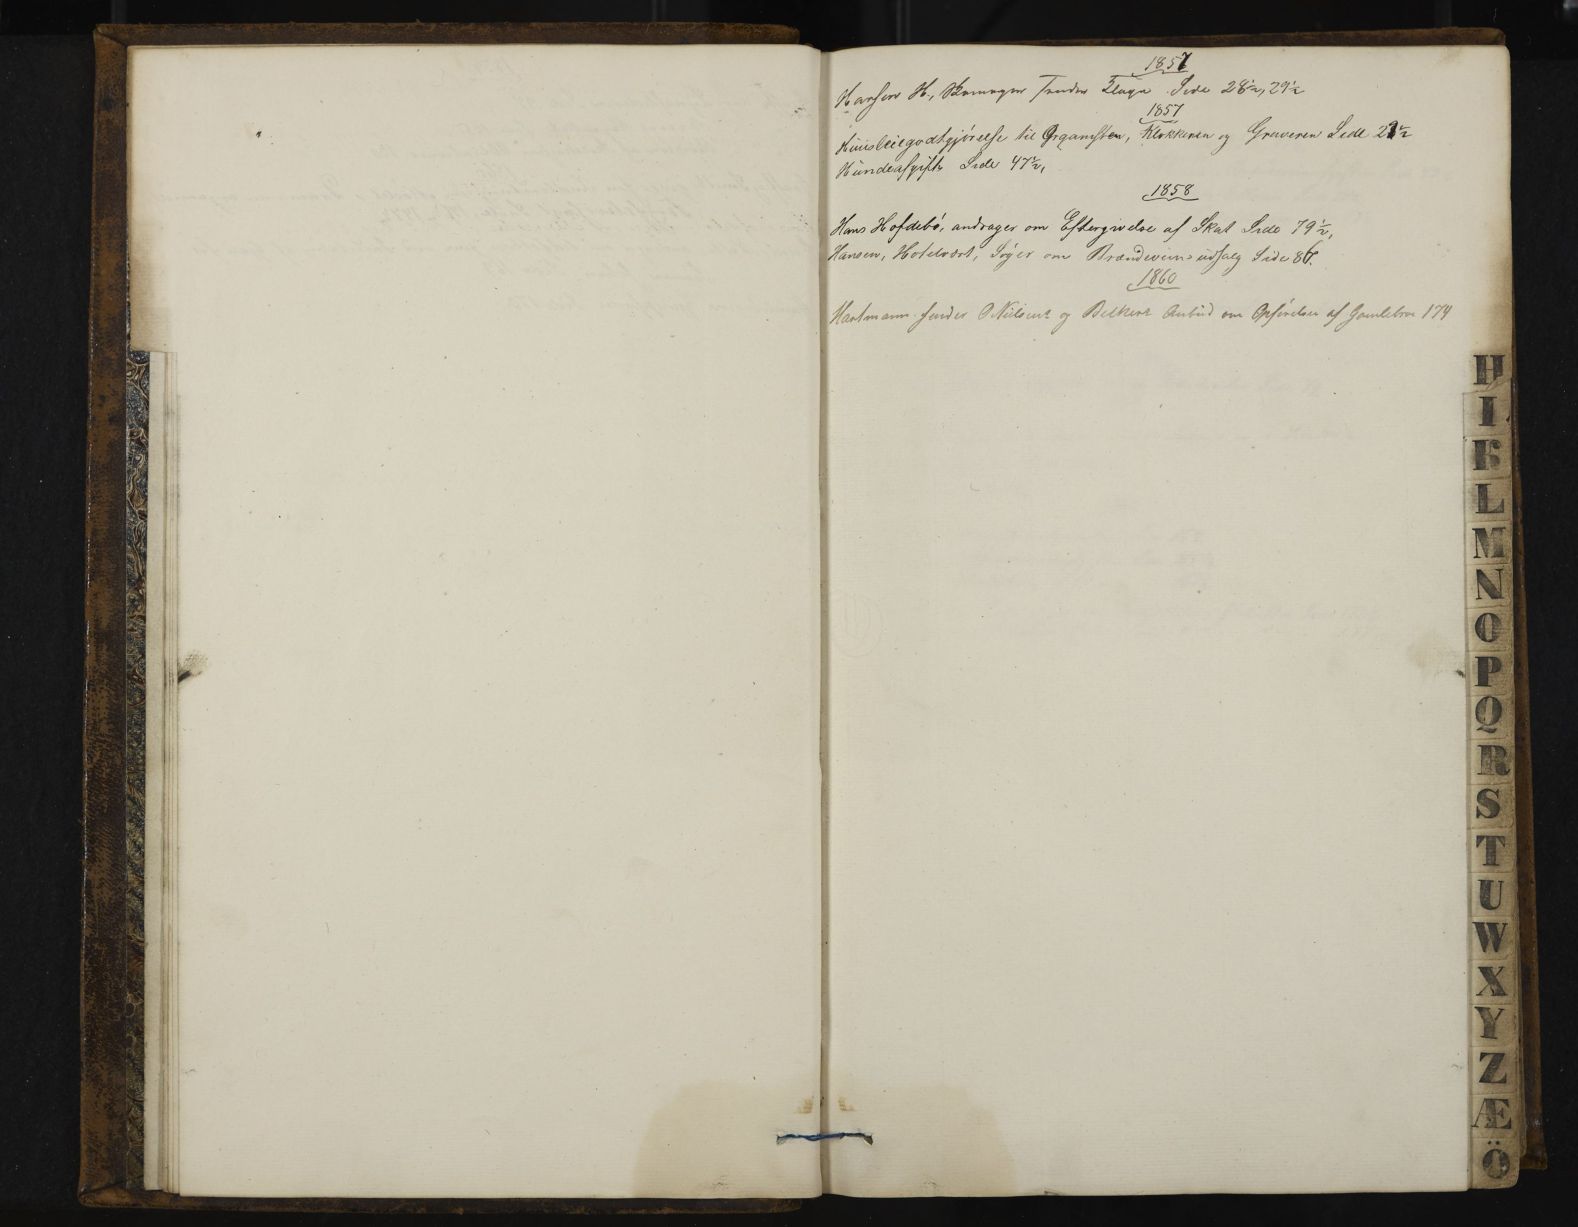 1857
Hansen H, Skomager sender Klage Side 28½, 29½
1857
Huusleiegodtgjørelse til Organisten, Klokkeren og Graveren Side 29½
Hundeafgift Side 47½,
1858
Hans Hofdebö, andrager om Eftergivelse af Skat Side 79½,
Hansen, Hotelvært, Søger om Brændeviinsudsalg Side 86.
1860
Hartmann sender Nielsens og Anbud om Opførelse af Gamlebroe 174
H
I
K
L
M
N
O
P
Q
R
S
T
U
W
X
Y
Z
Æ
Ö